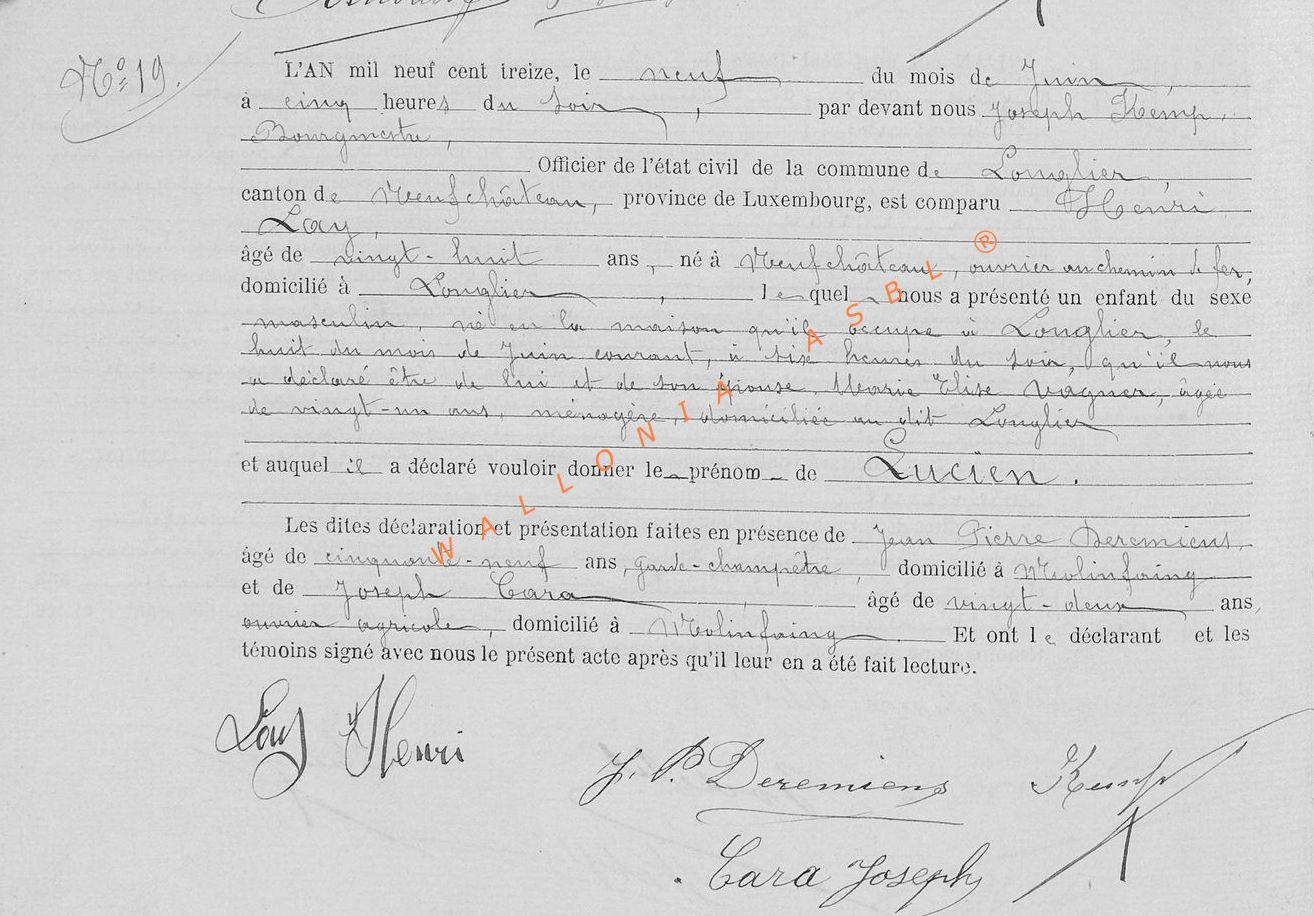 Nº 19.
L'AN mil neuf cent treize, le neuf du mois de Juin,
à cinq heures du soir, par devant nous Joseph Kemp,
Bourgmestre,
Officier de l'état civil de la commune de Longlier,
canton de Neufchâteau, province de Luxembourg, est comparu Henri
Lay,
âgé de vingt-huit ans, né à Neufchâteau, ouvrier au chemin de fer,
domicilié à Longlier, lequel nous a présenté un enfant du sexe
masculin, né en la maison qu'il occupe à Longlier, le
huit du mois de Juin courant, à six heures du soir, qu'il nous
a déclaré être de lui et de son épouse, Marie Elise Wagner, âgée
de vingt-un ans, ménagère, domiciliée au dit Longlier
et auquel il a déclaré vouloir donner le prénom de Lucien.
Les dites déclaration et présentation faites en présence de Jean Pierre Deremiens,
âgé de cinquante-neuf ans, garde-champêtre, domicilié à Molinfaing
et de Joseph Cara, âgé de vingt-deux ans,
ouvrier agricole, domicilié à Molinfaing. Et ont le déclarant et les
témoins signé avec nous le présent acte après qu'il leur en a été fait lecture.
Lay Henri
J. P. Deremiens Kemp
Cara Joseph
WALLONIA ASBL ®